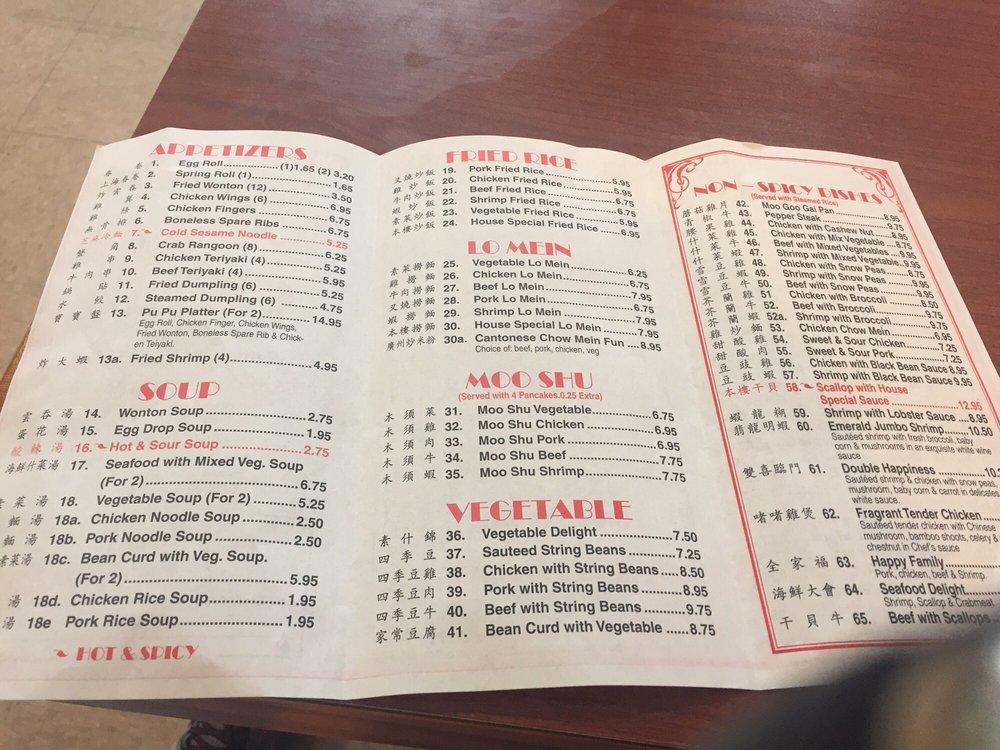 APPETIZERS
春 卷 1. Egg Roll (1)1.65 (2) 3.20
上海春卷 2. Spring Roll (1) 1.65
炸雲吞 3. Fried Wonton (12) 3.50
雞翼 4. Chicken Wings (6) 6.75
雞條 5. Chicken Fingers 6.25
無骨排 6. Boneless Spare Ribs 6.75
芝麻冷麵 7. Cold Sesame Noodle 5.25
蟹角 8. Crab Rangoon (8) 6.25
雞串 9. Chicken Teriyaki (4) 5.95
牛肉串 10. Beef Teriyaki (4) 5.95
鍋貼 11. Fried Dumpling (6) 5.25
水餃 12. Steamed Dumpling (6) 4.75
寶寶盤 13. Pu Pu Platter (For 2) 14.95
Egg Roll, Chicken Finger, Chicken Wings,
Fried Wonton, Boneless Spare Rib & Chick-
en Teiyaki.
炸大蝦 13a. Fried Shrimp (4) 4.95
SOUP
雲吞湯 14. Wonton Soup 2.75
蛋花湯 15. Egg Drop Soup 1.95
酸辣湯 16. Hot & Sour Soup 2.75
海鮮什菜湯 17. Seafood with Mixed Veg. Soup
(For 2) 6.75
素菜湯 18. Vegetable Soup (For 2) 5.25
麵湯 18a. Chicken Noodle Soup 2.50
麵湯 18b. Pork Noodle Soup 2.50
素菜湯 18c. Bean Curd with Veg. Soup.
(For 2) 5.95
湯 18d. Chicken Rice Soup 1.95
湯 18e Pork Rice Soup 1.95
HOT & SPICY
FRIED RICE
叉燒炒飯 19. Pork Fried Rice 5.95
雞炒飯 20. Chicken Fried Rice 5.95
牛肉炒飯 21. Beef Fried Rice 6.75
蝦炒飯 22. Shrimp Fried Rice 6.75
素菜炒飯 23. Vegetable Fried Rice 5.95
本樓炒飯 24. House Special Fried Rice 6.95
LO MEIN
素菜撈麵 25. Vegetable Lo Mein 6.25
雞撈麵 26. Chicken Lo Mein 6.75
牛肉撈麵 27. Beef Lo Mein 7.95
叉燒撈麵 28. Pork Lo Mein 6.75
蝦撈麵 29. Shrimp Lo Mein 7.95
本樓撈麵 30. House Special Lo Mein 7.95
廣州炒米粉 30a. Cantonese Chow Mein Fun 8.95
Choice of: beef, pork, chicken, veg
MOO SHU
(Served with 4 Pancakes.0.25 Extra)
木須菜 31. Moo Shu Vegetable 6.75
木須雞 32. Moo Shu Chicken 6.95
木須肉 33. Moo Shu Pork 6.95
木須牛 34. Moo Shu Beef 7.75
木須蝦 35. Moo Shu Shrimp 7.75
VEGETABLE
素什錦 36. Vegetable Delight 7.50
四季豆 37. Sauteed String Beans 7.25
四季豆雞 38. Chicken with String Beans 8.50
四季豆肉 39. Pork with String Beans 8.95
四季豆牛 40. Beef with String Beans 9.75
家常豆腐 41. Bean Curd with Vegetable 8.75
NON - SPICY DISHES
(Served with Steamed Rice)
蘑菇雞片 42. Moo Goo Gai Pan 8.95
青椒牛 43. Pepper Steak 9.75
腰果雞 44. Chicken with Cashew Nut
什菜雞 45. Chicken with Mix Vegetable 8.75
什菜牛 46. Beef with Mixed Vegetables
什菜蝦 47. Shrimp with Mixed Vegetable
雪豆雞 48. Chicken with Snow Peas 8.75
雪豆蝦 49. Shrimp with Snow Peas 9.75
雪豆牛 50. Beef with Snow Peas 9.75
芥蘭雞 51 Chicken with Broccoli 8.50
芥蘭牛 52. Beef with Broccoli 9.75
芥蘭蝦 52a. Shrimp with Broccoli 9.75
雞炒麵 53. Chicken Chow Mein
甜酸雞 54. Sweet & Sour Chicken 7.25
甜酸肉 55. Sweet & Sour Pork 7.25
豆豉雞 56. Chicken with Black Bean Sauce 8.95
豆豉蝦 57. Shrimp with Black Bean Sauce 9.95
本樓干貝 58. Scallop with House
Special Sauce 12.95
蝦龍糊 59. Shrimp with Lobster Sauce 8.95
翡翠明蝦 60. Emerald Jumbo Shrimp 10.50
Sautéed shrimp with fresh broccoli, baby
corn & mushrooms in an exquisite white wine
sauce
雙喜臨門 61. Double Happiness
Sautéed shrimp & chicken with snow peas,
mushroom, baby corn & carrot in delicates
white sauce.
啫啫雞煲 62. Fragrant Tender Chicken
Sautéed tender chicken with Chinese
mushroom, bamboo shoots, celery &
chestnut in Chef's sauce
全家福 63. Happy Family
Pork, chicken, beef & Shrimp.
海鮮大會 64. Seafood Delight
Shrimp, Scallop & Crabmeat
干貝牛 65. Beef with Scallops